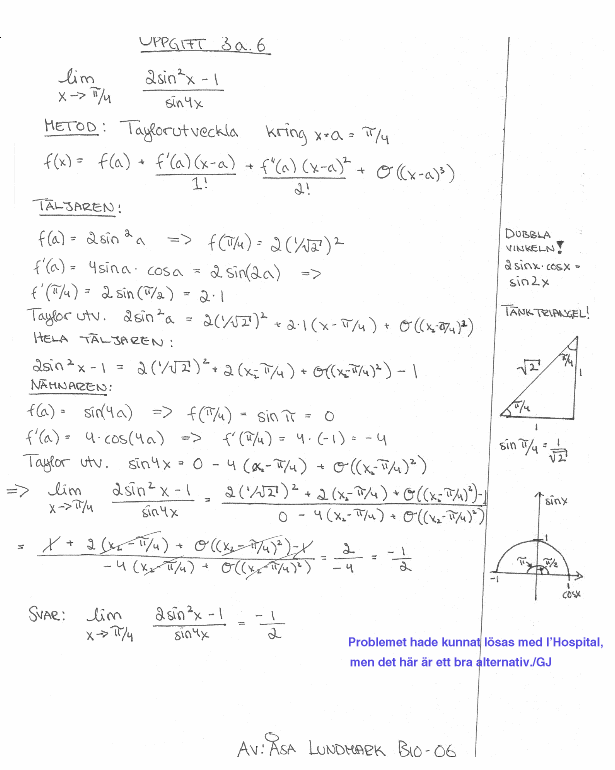 UPPGIFT 3a.6
lim x→π/4 (2sin²x − 1)/(sin4x)
METOD: Taylorutveckla kring x=a = π/4
f(x) = f(a) + f'(a)(x-a)/1! + f''(a)(x-a)²/2! + O((x-a)³)
TÄLJAREN:
f(a) = 2sin²a => f(π/4) = 2(1/√2)²
f'(a) = 4sina · cosa = 2sin(2a) =>
f'(π/4) = 2sin(π/2) = 2·1
Taylor utv. 2sin²a = 2(1/√2)² + 2·1(x-π/4) + O((x-π/4)²)
HELA TÄLJAREN:
2sin²x − 1 = 2(1/√2)² + 2(x-π/4) + O((x-π/4)²) − 1
NÄMNAREN:
f(a) = sin(4a) => f(π/4) = sin π = 0
f'(a) = 4·cos(4a) => f'(π/4) = 4·(-1) = -4
Taylor utv. sin4x = 0 − 4(x-π/4) + O((x-π/4)²)
=> lim x→π/4 (2sin²x − 1)/(sin4x) = (2(1/√2)² + 2(x-π/4) + O((x-π/4)²) − 1)/(0 − 4(x-π/4) + O((x-π/4)²))
= (1 + 2(x-π/4) + O((x-π/4)²) − 1)/(-4(x-π/4) + O((x-π/4)²)) = 2/-4 = -1/2
SVAR: lim x→π/4 (2sin²x − 1)/(sin4x) = -1/2
DUBBLA
VINKELN!
2sinx·cosx =
sin2x
TÄNK TRIANGEL!
√2 π/4 1
π/4
1
sin π/4 = 1/√2
sinx
1
π π/2
-1 1
cosx
Problemet hade kunnat lösas med l'Hospital,
men det här är ett bra alternativ./GJ
AV: ÅSA LUNDMARK BIO-06